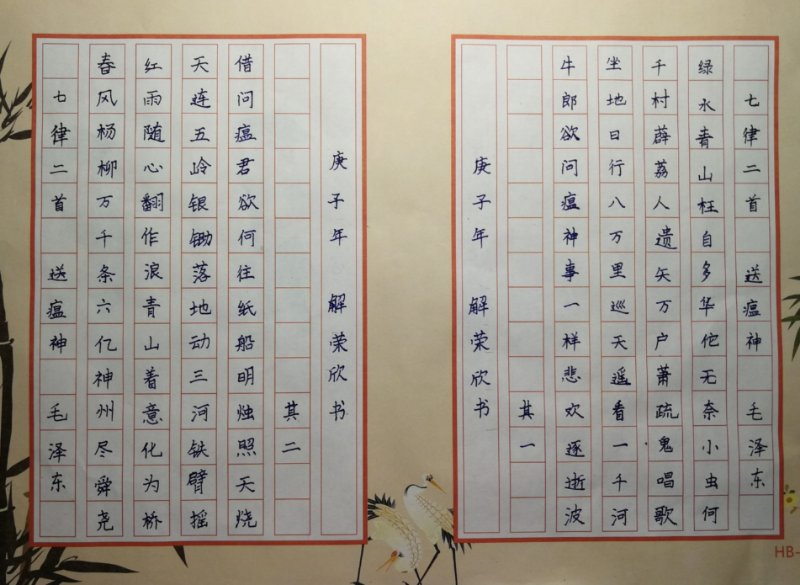 七律二首 送瘟神 毛泽东
绿水青山枉自多华佗无奈小虫何
千村薜荔人遗矢万户萧疏鬼唱歌
坐地日行八万里巡天遥看一千河
牛郎欲问瘟神事一样悲欢逐逝波
其一
庚子年 解荣欣书
七律二首 送瘟神 毛泽东
春风杨柳万千条六亿神州尽舜尧
红雨随心翻作浪青山着意化为桥
天连五岭银锄落地动三河铁臂摇
借问瘟君欲何往纸船明烛照天烧
其二
庚子年 解荣欣书
HB-